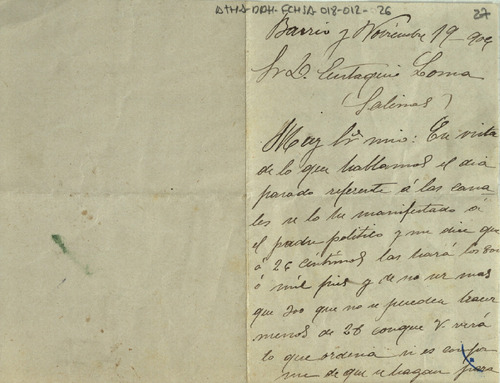 ATHA-DAH-FCHSA-018-012-26
27
Barrio y Noviembre 19-909
Sr D. Eustaquio Loma
(Salinas)
Muy Sr mio: En vista
de lo que hablamos el dia
pasado referente á las cana
les se lo he manifestado á
el padre politico y me dice que
á 26 centimos las hará los 800
ó mil pies y de no ser mas
que 300 que no se pueden hacer
menos de 28 conque V. verá
lo que ordena si es confor
me de que se hagan para